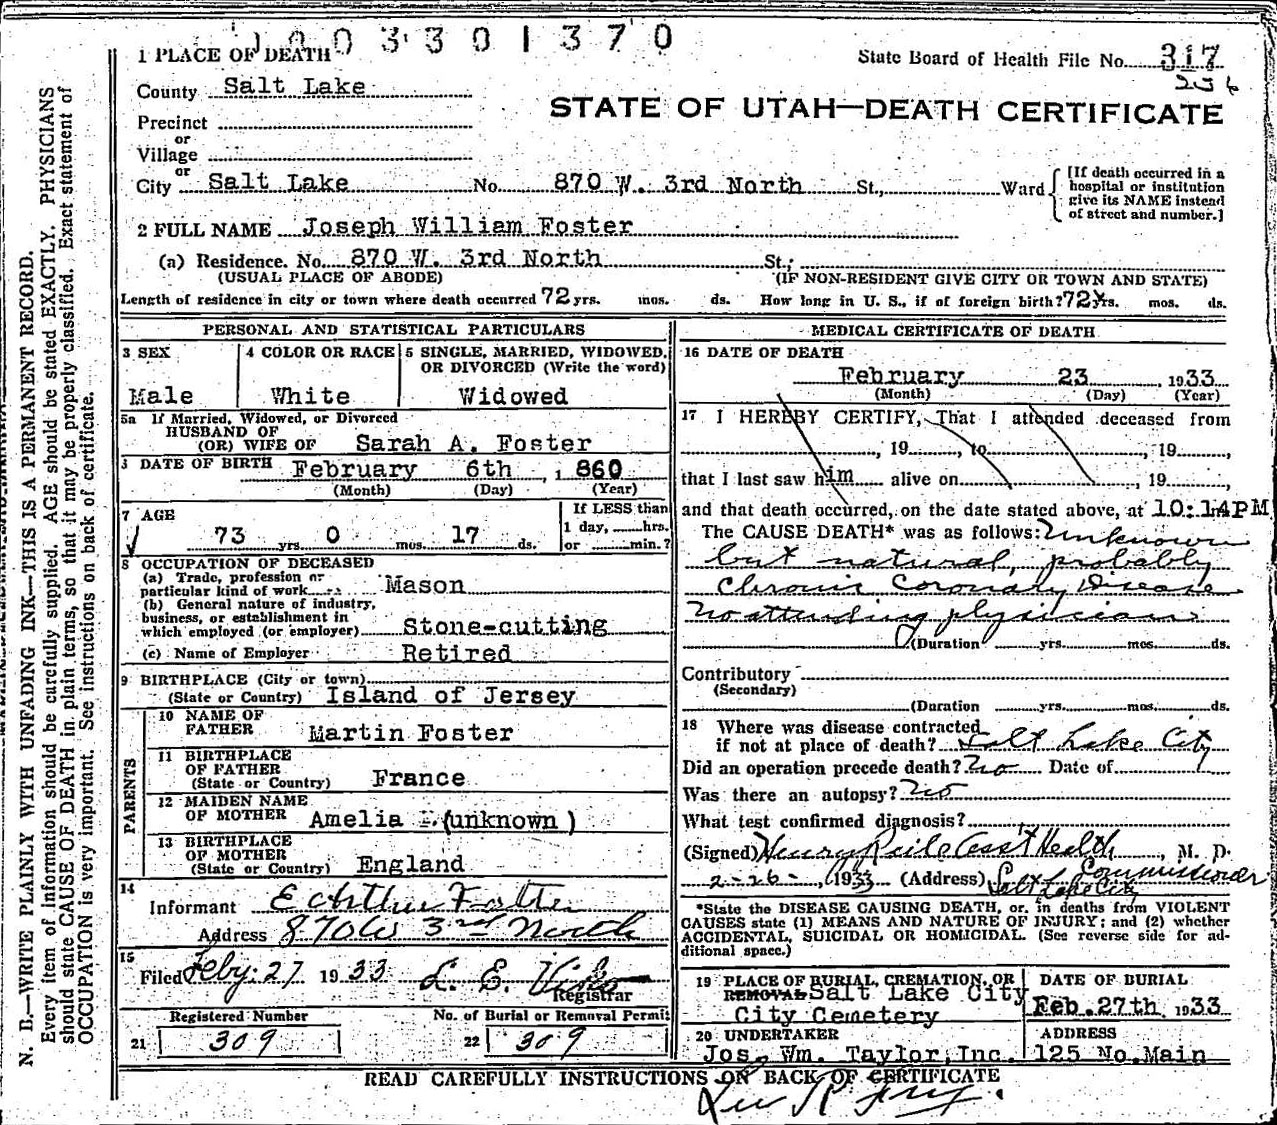 003301370
1 PLACE OF DEATH
State Board of Health File No. 317
County Salt Lake
STATE OF UTAH—DEATH CERTIFICATE
Precinct
or
Village
or
City Salt Lake No. 870 W. 3rd North St., Ward
[If death occurred in a hospital or institution give its NAME instead of street and number.]
2 FULL NAME Joseph William Foster
(a) Residence. No. 870 W. 3rd North St.;
(USUAL PLACE OF ABODE) (IF NON-RESIDENT GIVE CITY OR TOWN AND STATE)
Length of residence in city or town where death occurred 72 yrs. mos. ds. How long in U. S., if of foreign birth? 72 yrs. mos. ds.
PERSONAL AND STATISTICAL PARTICULARS
3 SEX
Male
4 COLOR OR RACE
White
5 SINGLE, MARRIED, WIDOWED, OR DIVORCED (Write the word)
Widowed
5a If Married, Widowed, or Divorced
HUSBAND OF
(OR) WIFE OF Sarah A. Foster
DATE OF BIRTH February 6th, 1860
(Month) (Day) (Year)
7 AGE
73 yrs. 0 mos. 17 ds.
If LESS than
1 day, hrs.
or min.?
8 OCCUPATION OF DECEASED
(a) Trade, profession or
particular kind of work Mason
(b) General nature of industry,
business, or establishment in
which employed (or employer) Stone-cutting
(c) Name of Employer Retired
9 BIRTHPLACE (City or town)
(State or Country) Island of Jersey
PARENTS
10 NAME OF
FATHER Martin Foster
11 BIRTHPLACE
OF FATHER
(State or Country) France
12 MAIDEN NAME
OF MOTHER Amelia - (unknown)
13 BIRTHPLACE
OF MOTHER
(State or Country) England
14
Informant E Arthur Foster
Address 870 W 3rd North
15
Filed Feby. 27 1933 L. E.
Registrar
Registered Number
21 309
No. of Burial or Removal Permit
22 309
MEDICAL CERTIFICATE OF DEATH
16 DATE OF DEATH
February 23, 1933
(Month) (Day) (Year)
17 I HEREBY CERTIFY, That I attended deceased from
, 19 , to , 19 ,
that I last saw him alive on , 19 ,
and that death occurred, on the date stated above, at 10:14PM
The CAUSE DEATH* was as follows: Unknown
but natural, probably
Chronic Coronary Disease
No attending physician
(Duration yrs. mos. ds.
Contributory
(Secondary)
(Duration yrs. mos. ds.
18 Where was disease contracted
if not at place of death? Salt Lake City
Did an operation precede death? No Date of
Was there an autopsy? No
What test confirmed diagnosis?
(Signed) Henry Asst Health, M. D.
Commissioner
2-26-, 1933 (Address) Salt Lake City
*State the DISEASE CAUSING DEATH, or, in deaths from VIOLENT
CAUSES state (1) MEANS AND NATURE OF INJURY; and (2) whether
ACCIDENTAL, SUICIDAL OR HOMICIDAL. (See reverse side for ad-
ditional space.)
19 PLACE OF BURIAL, CREMATION, OR
REMOVAL Salt Lake City
City Cemetery
DATE OF BURIAL
Feb. 27th 1933
20 UNDERTAKER
Jos. Wm. Taylor, Inc.
ADDRESS
125 No. Main
READ CAREFULLY INSTRUCTIONS ON BACK OF CERTIFICATE
N. B.—WRITE PLAINLY WITH UNFADING INK—THIS IS A PERMANENT RECORD.
Every item of information should be carefully supplied. AGE should be stated EXACTLY. PHYSICIANS
should state CAUSE OF DEATH in plain terms, so that it may be properly classified. Exact statement of
OCCUPATION is very important. See instructions on back of certificate.